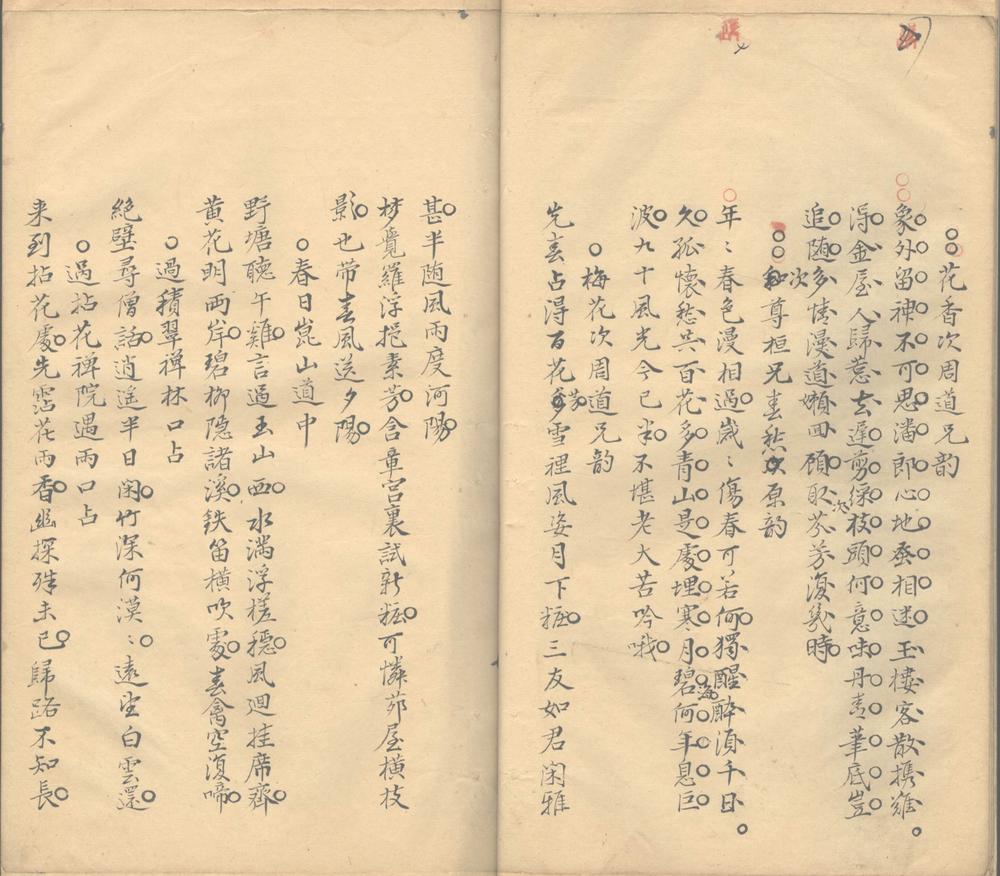 花香次周道兄韵
象外留神不可思潘郎心地丞相迷玉樓客散携難
淂金屋人歸惹去遲剪綵枝頭何意味丹青筆底豈
追随多情漫道嬾回顧取次芬芳復幾時
和尊桓兄春愁次原韵
年〻春色漫相過歲〻傷春可若何獨醒醉須千日
久孤懷愁共百花多青山是處埋寒月碧海何年息巨
波九十風光今已半不堪老大苦吟哦
梅花次周道兄韵
先春占得百花芳雪裡風姿月下粧三友如君闲雅
甚半随風雨度河陽
梦覺羅浮挹素芬含章宫裏試新粧可憐茆屋横枝
影也带春風送夕陽
春日崑山道中
野塘聴午雞言過玉山西水满浮槎穏風迴挂席齊
黄花明両岸碧柳隐諸溪鉄笛横吹處春禽空復啼
過積翠禅林口占
絶壁尋僧話逍遥半日闲竹深何漠〻遠望白雲還
過拈花禅院遇雨口占
来到拈花處先霑花雨香幽探殊未已歸路不知長